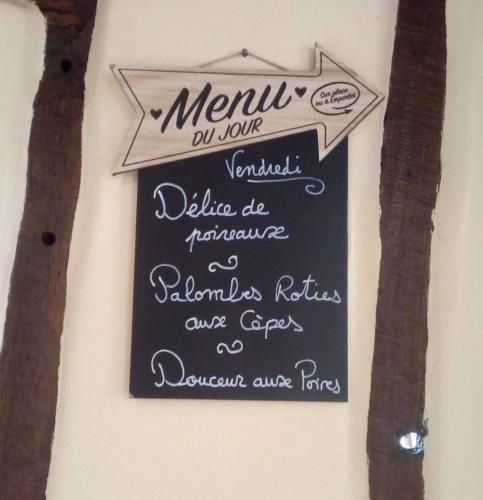 Menu
DU JOUR
Sur place
ou à Emporter
Vendredi
Délice de
poireaux
Palombes Roties
aux Cèpes
Douceur aux Poires